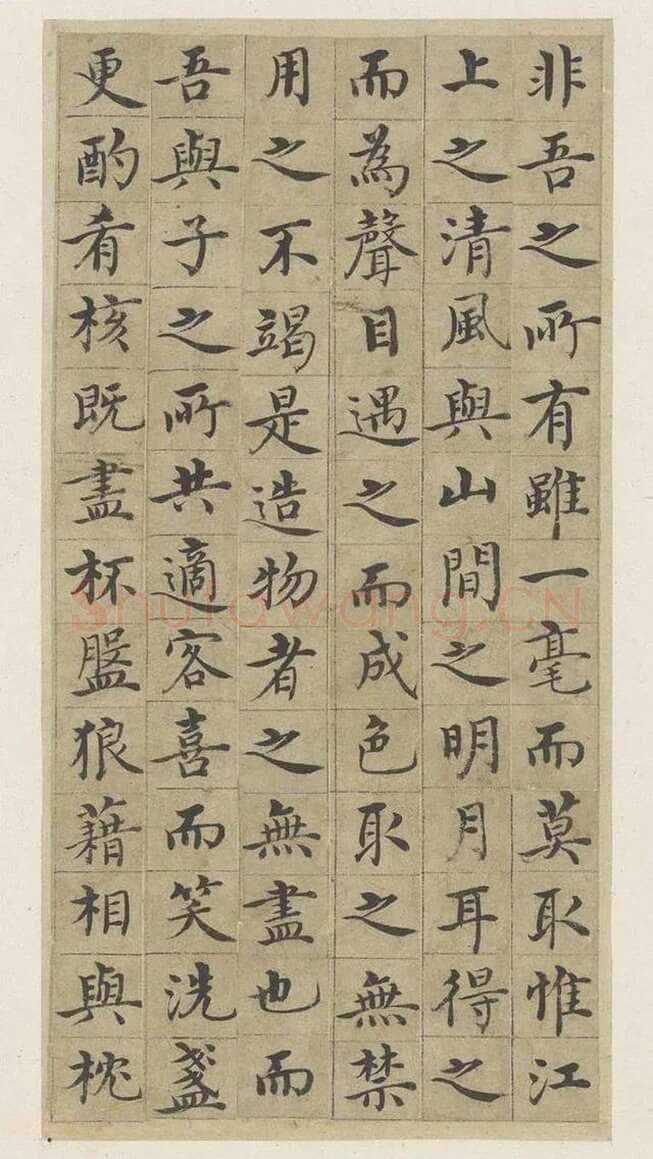 非吾之所有雖一毫而莫取惟江
上之清風與山間之明月耳得之
而為聲目遇之而成色取之無禁
用之不竭是造物者之無盡也而
吾與子之所共適客喜而笑洗盞
更酌肴核既盡杯盤狼藉相與枕
shufawang.CN